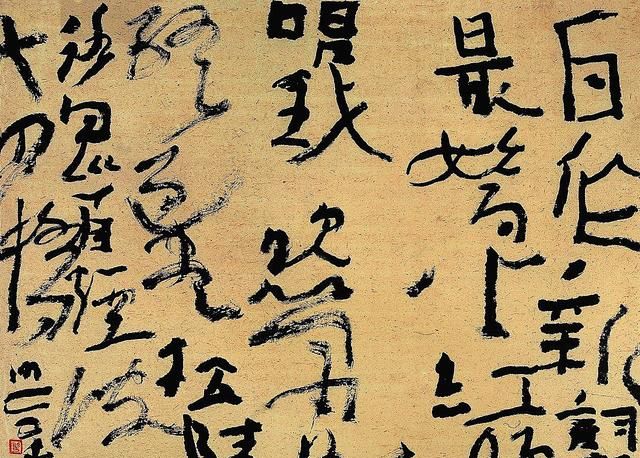 自作新詞
最嬌小紅
唱我吹簫
終過盡松陵
路回首煙波
十四橋